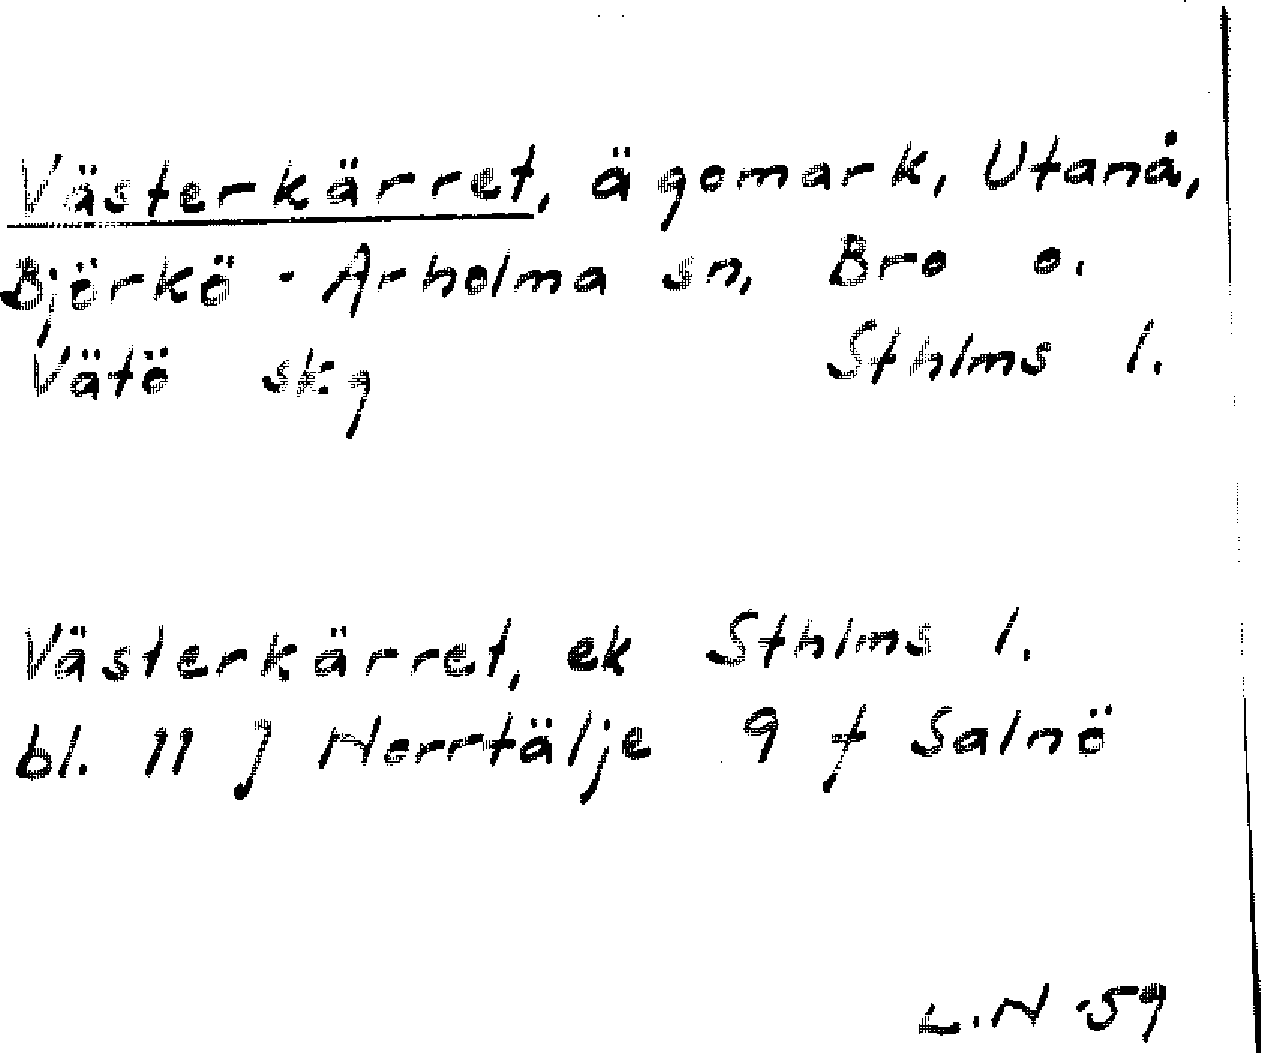 Västerkärret, ägomark, Utanå,
Björkö - Arholma sn, Bro o.
Vätö sk:g Sthlms l.
Västerkärret, ek Sthlms l.
bl. 11 J Norrtälje 9 f Salnö
L.N -59